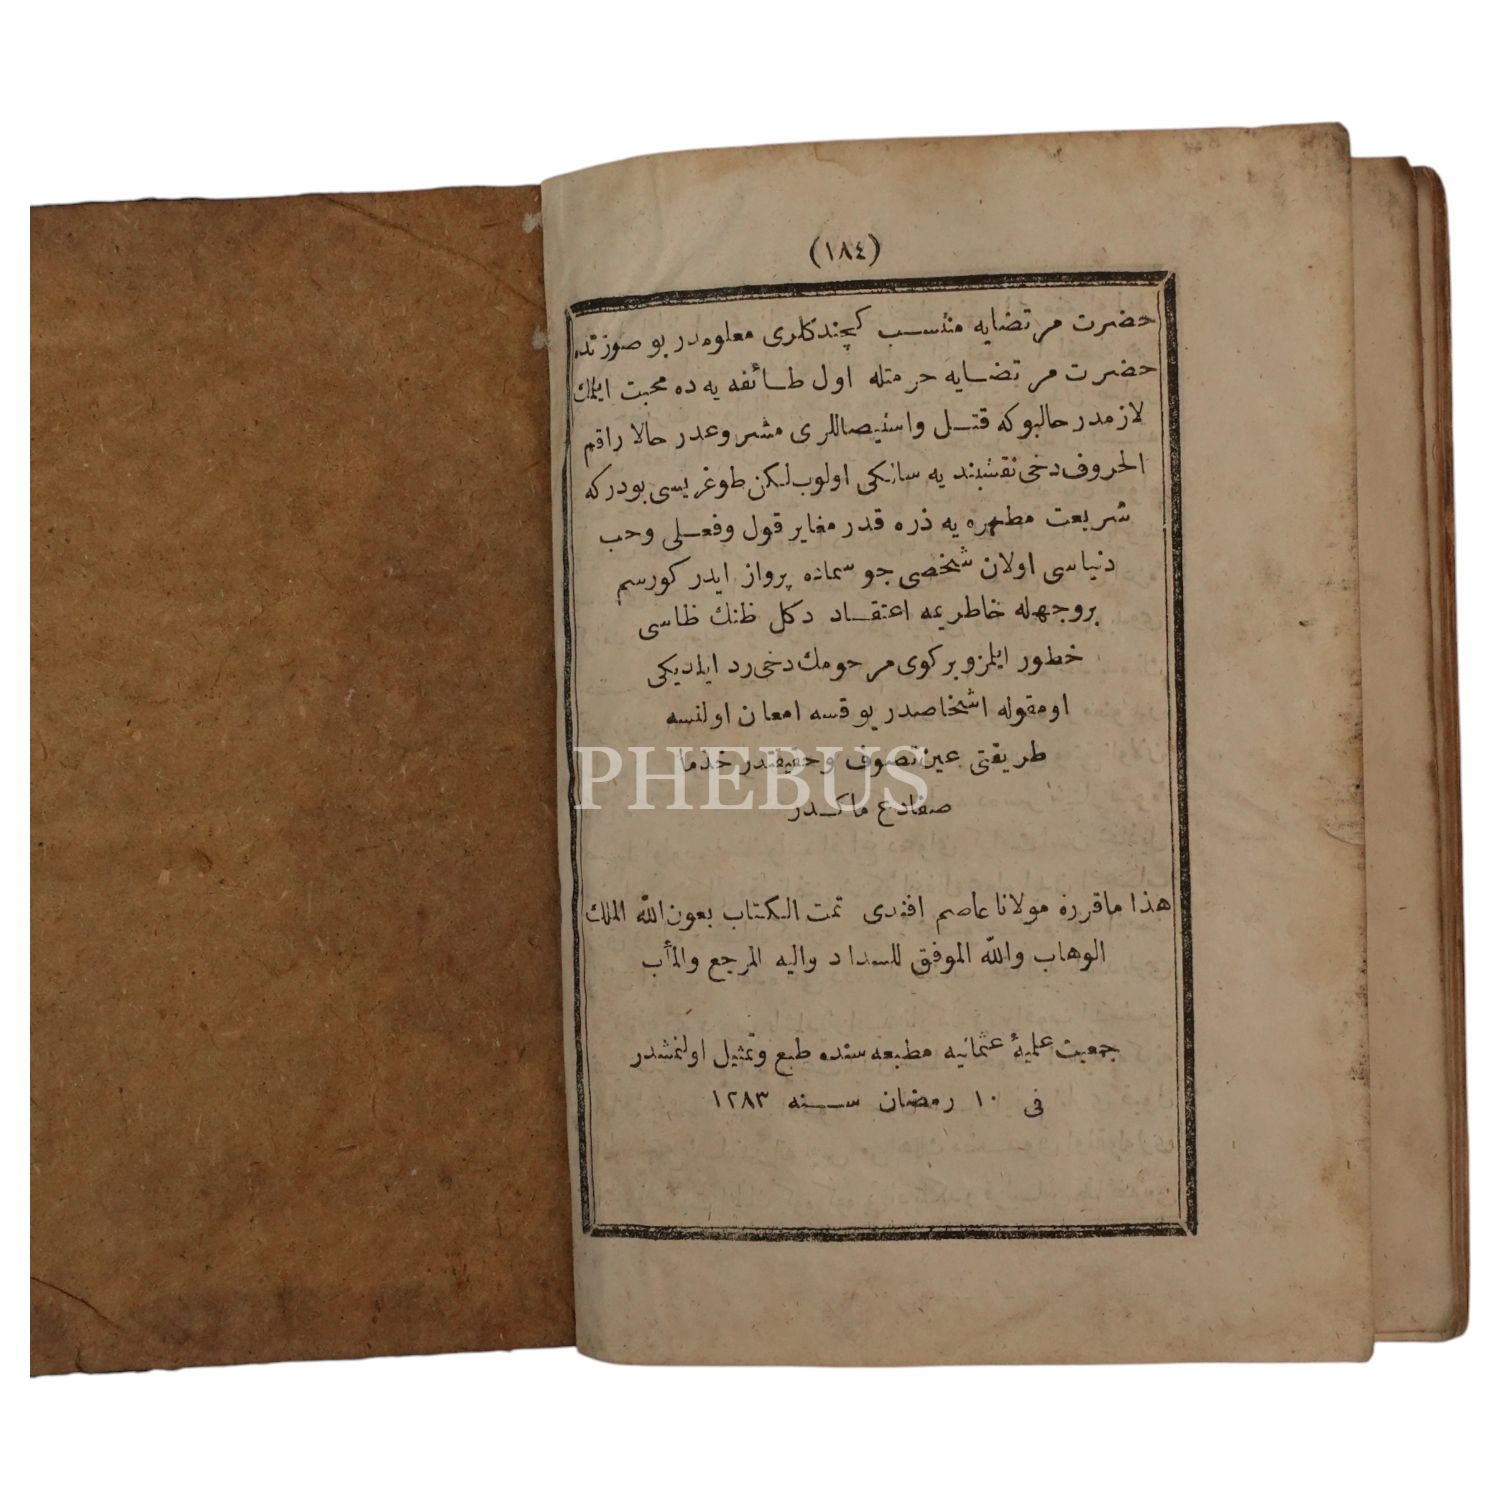 (١٨٤)
حضرت مرتضایه منتسب کچندکلری معلومدر بو صورتده
حضرت مرتضایه حرمتله اول طائفه یه ده محبت ایلمك
لازمدر حالبوکه قتل واستیصاللری مشروعدر حالا راقم
الحروف دخی نقشبندیه سالکی اولوب لکن طوغریسی بودرکه
شریعت مطهره یه ذره قدر مغایر قول وفعلی وحب
دنیاسی اولان شخصی جو سماده پرواز ایدر کورسم
بروجهله خاطریمه اعتقاد دکل ظنك ظاسی
خطور ایلمز وبرکوی مرحومك دخی رد ایلدیکی
اومقوله اشخاصدر یوقسه امعان اولنسه
طریقتی عین تصوف وحقیقتدر خذما
صفادع ماکدر
هذا ماقرره مولانا عاصم افندی تمت الکتاب بعون الله الملك
الوهاب والله الموفق للسداد والیه المرجع والمأب
جمعیت علمیۀ عثمانیه مطبعه سنده طبع وتمثیل اولنمشدر
فی ١٠ رمضان سنه ١٢٨٣
PHEBUS